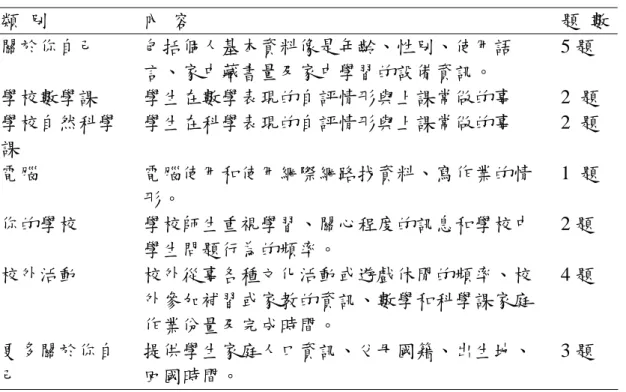 類 別 內 容 題 數
關於你自己 包括個人基本資料像是年齡、性別、使用語 5 題
言、家中藏書量及家中學習的設備資訊。
學校數學課 學生在數學表現的自評情形與上課常做的事 2 題
學校自然科學 學生在科學表現的自評情形與上課常做的事 2 題
課
電腦 電腦使用和使用網際網路找資料、寫作業的情 1 題
形。
你的學校 學校師生重視學習、關心程度的訊息和學校中 2 題
學生問題行為的頻率。
校外活動 校外從事各種文化活動或遊戲休閒的頻率、校 4 題
外參加補習或家教的資訊、數學和科學課家庭
作業份量及完成時間。
更多關於你自 提供學生家庭人口資訊、父母國籍、出生地、 3 題
己 回國時間。